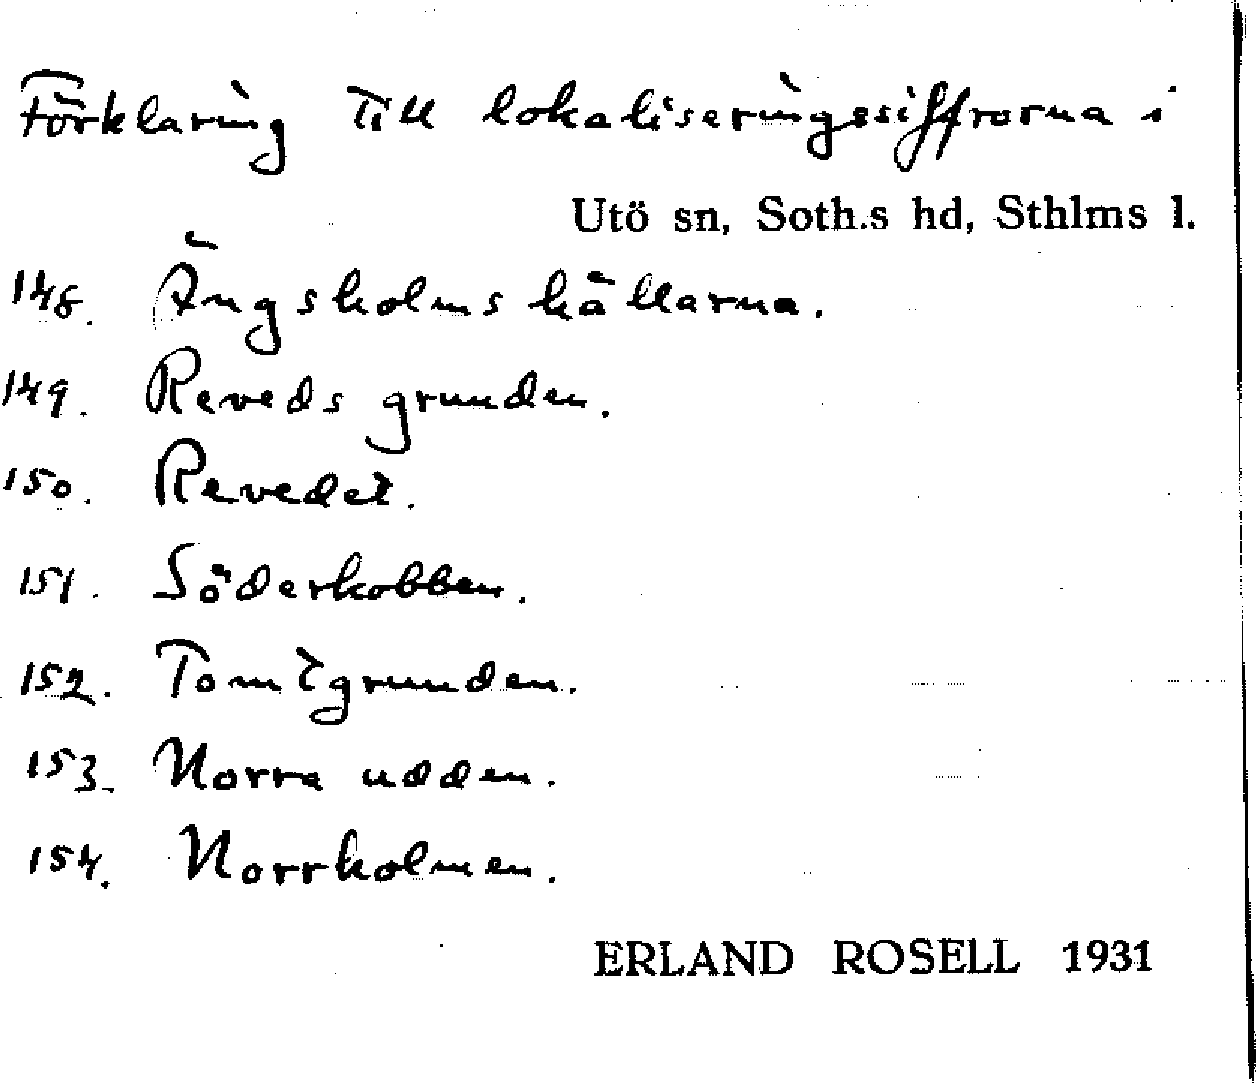 Förklaring till lokaliseringssiffrorna i
Utö sn, Soth.s hd, Sthlms l.
148. Ängsholmskällarna.
149. Reveds grunden.
150. Revedet.
151. Söderkobben.
152. Tomtgrunden.
153. Norra udden.
154. Norrholmen.
ERLAND ROSELL 1931